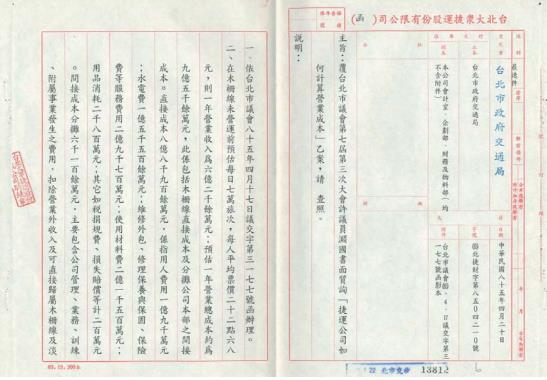 台北大眾捷運股份有限公司（函）
最速件
台北市政府交通局
台北市政府交通局
本公司會計室、企劃部、財務及物料部（均不含附件）
中華民國八十五年四月二十日
㊣北捷財字第八五〇四二一〇號
台北市議會㊣.4.17議交字第三一七七號函影本
主旨：覆台北市議會第七屆第三次大會許議員淵國書面質詢「捷運公司如
何計算營業成本」乙案，請　查照。
說明：
一、依台北市議會八十五年四月十七日議交字第三一七七號函辦理。
二、在木柵線未營運前預估每日七萬旅次，每人平均票價二十二點六八
元，則一年營業收入爲六億二千餘萬元；預估一年營業總成本約爲
九億五千餘萬元，此係包括木柵線直接成本及分攤公司本部之間接
成本。直接成本八億八千九百餘萬元，係指用人費用一億九千萬元
；水電費一億五千五百餘萬元；維修外包、修理保養與保固、保險
費等服務費用二億九千七百萬元；使用材料費二億一千五百萬元；
用品消耗二千八百萬元；其它如稅捐規費、損失賠償等計二百萬元
。間接成本分攤六千一百餘萬元，主要包含公司管理、業務、訓練
、附屬事業發生之費用，扣除營業外收入及可直接歸屬木柵線及淡
13812